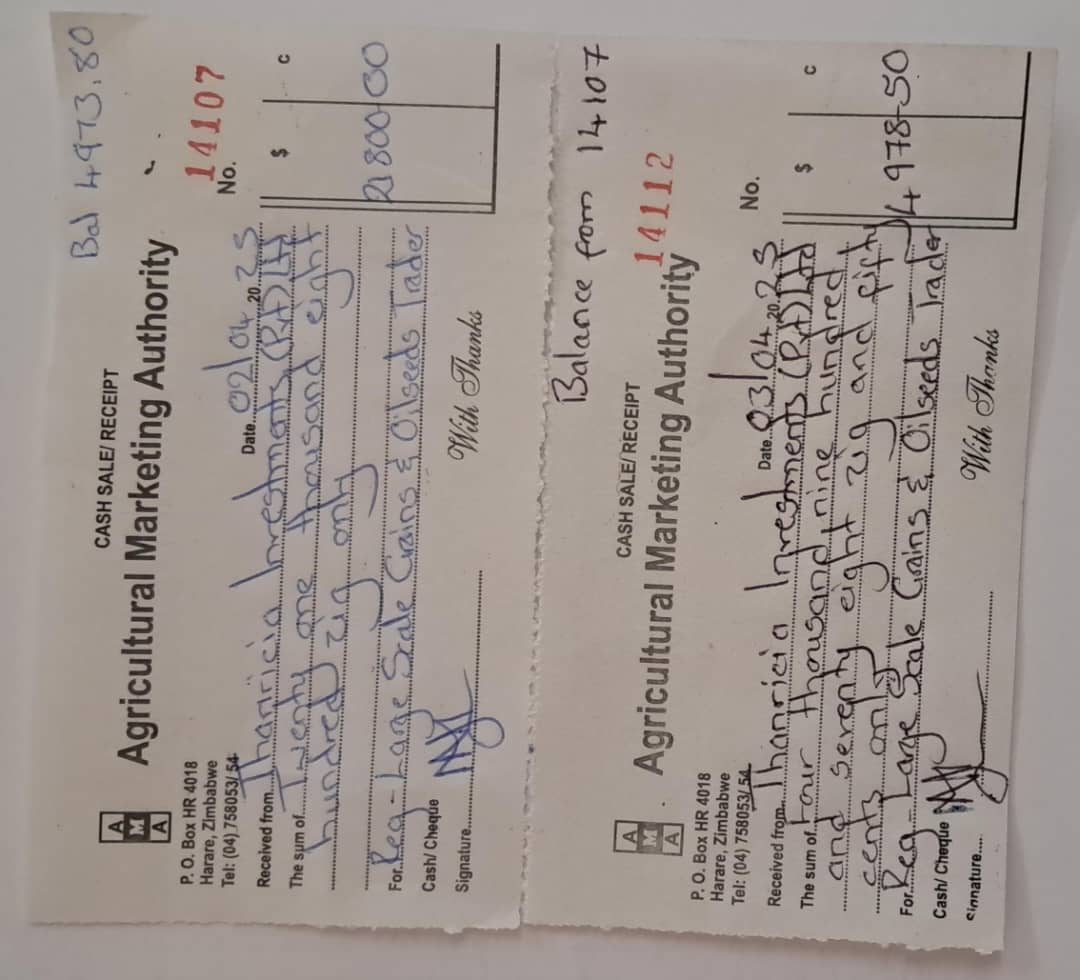 Bal 4973.80
CASH SALE/ RECEIPT
A M A
Agricultural Marketing Authority
14107
P. O. Box HR 4018
Harare, Zimbabwe
Tel: (04) 758053/ 54
No.
Date 02/04 20 25
Received from Thanricia Investments (Pvt) Ltd
$ c
The sum of Twenty one thousand eight
hundred zig only
21 800-00
For Reg - Large Scale Grains & Oilseeds Trader
Cash/ Cheque
Signature
With Thanks
Balance from 14107
CASH SALE/ RECEIPT
A M A
Agricultural Marketing Authority
14112
P. O. Box HR 4018
Harare, Zimbabwe
Tel: (04) 758053/ 54
No.
Date 03/04 20 25
Received from Thanricia Investments (Pvt) Ltd
$ c
The sum of Four thousand nine hundred
and seventy eight zig and fifty
cents only
4 978-50
For Reg - Large Scale Grains & Oilseeds Trader
Cash/ Cheque
Signature
With Thanks